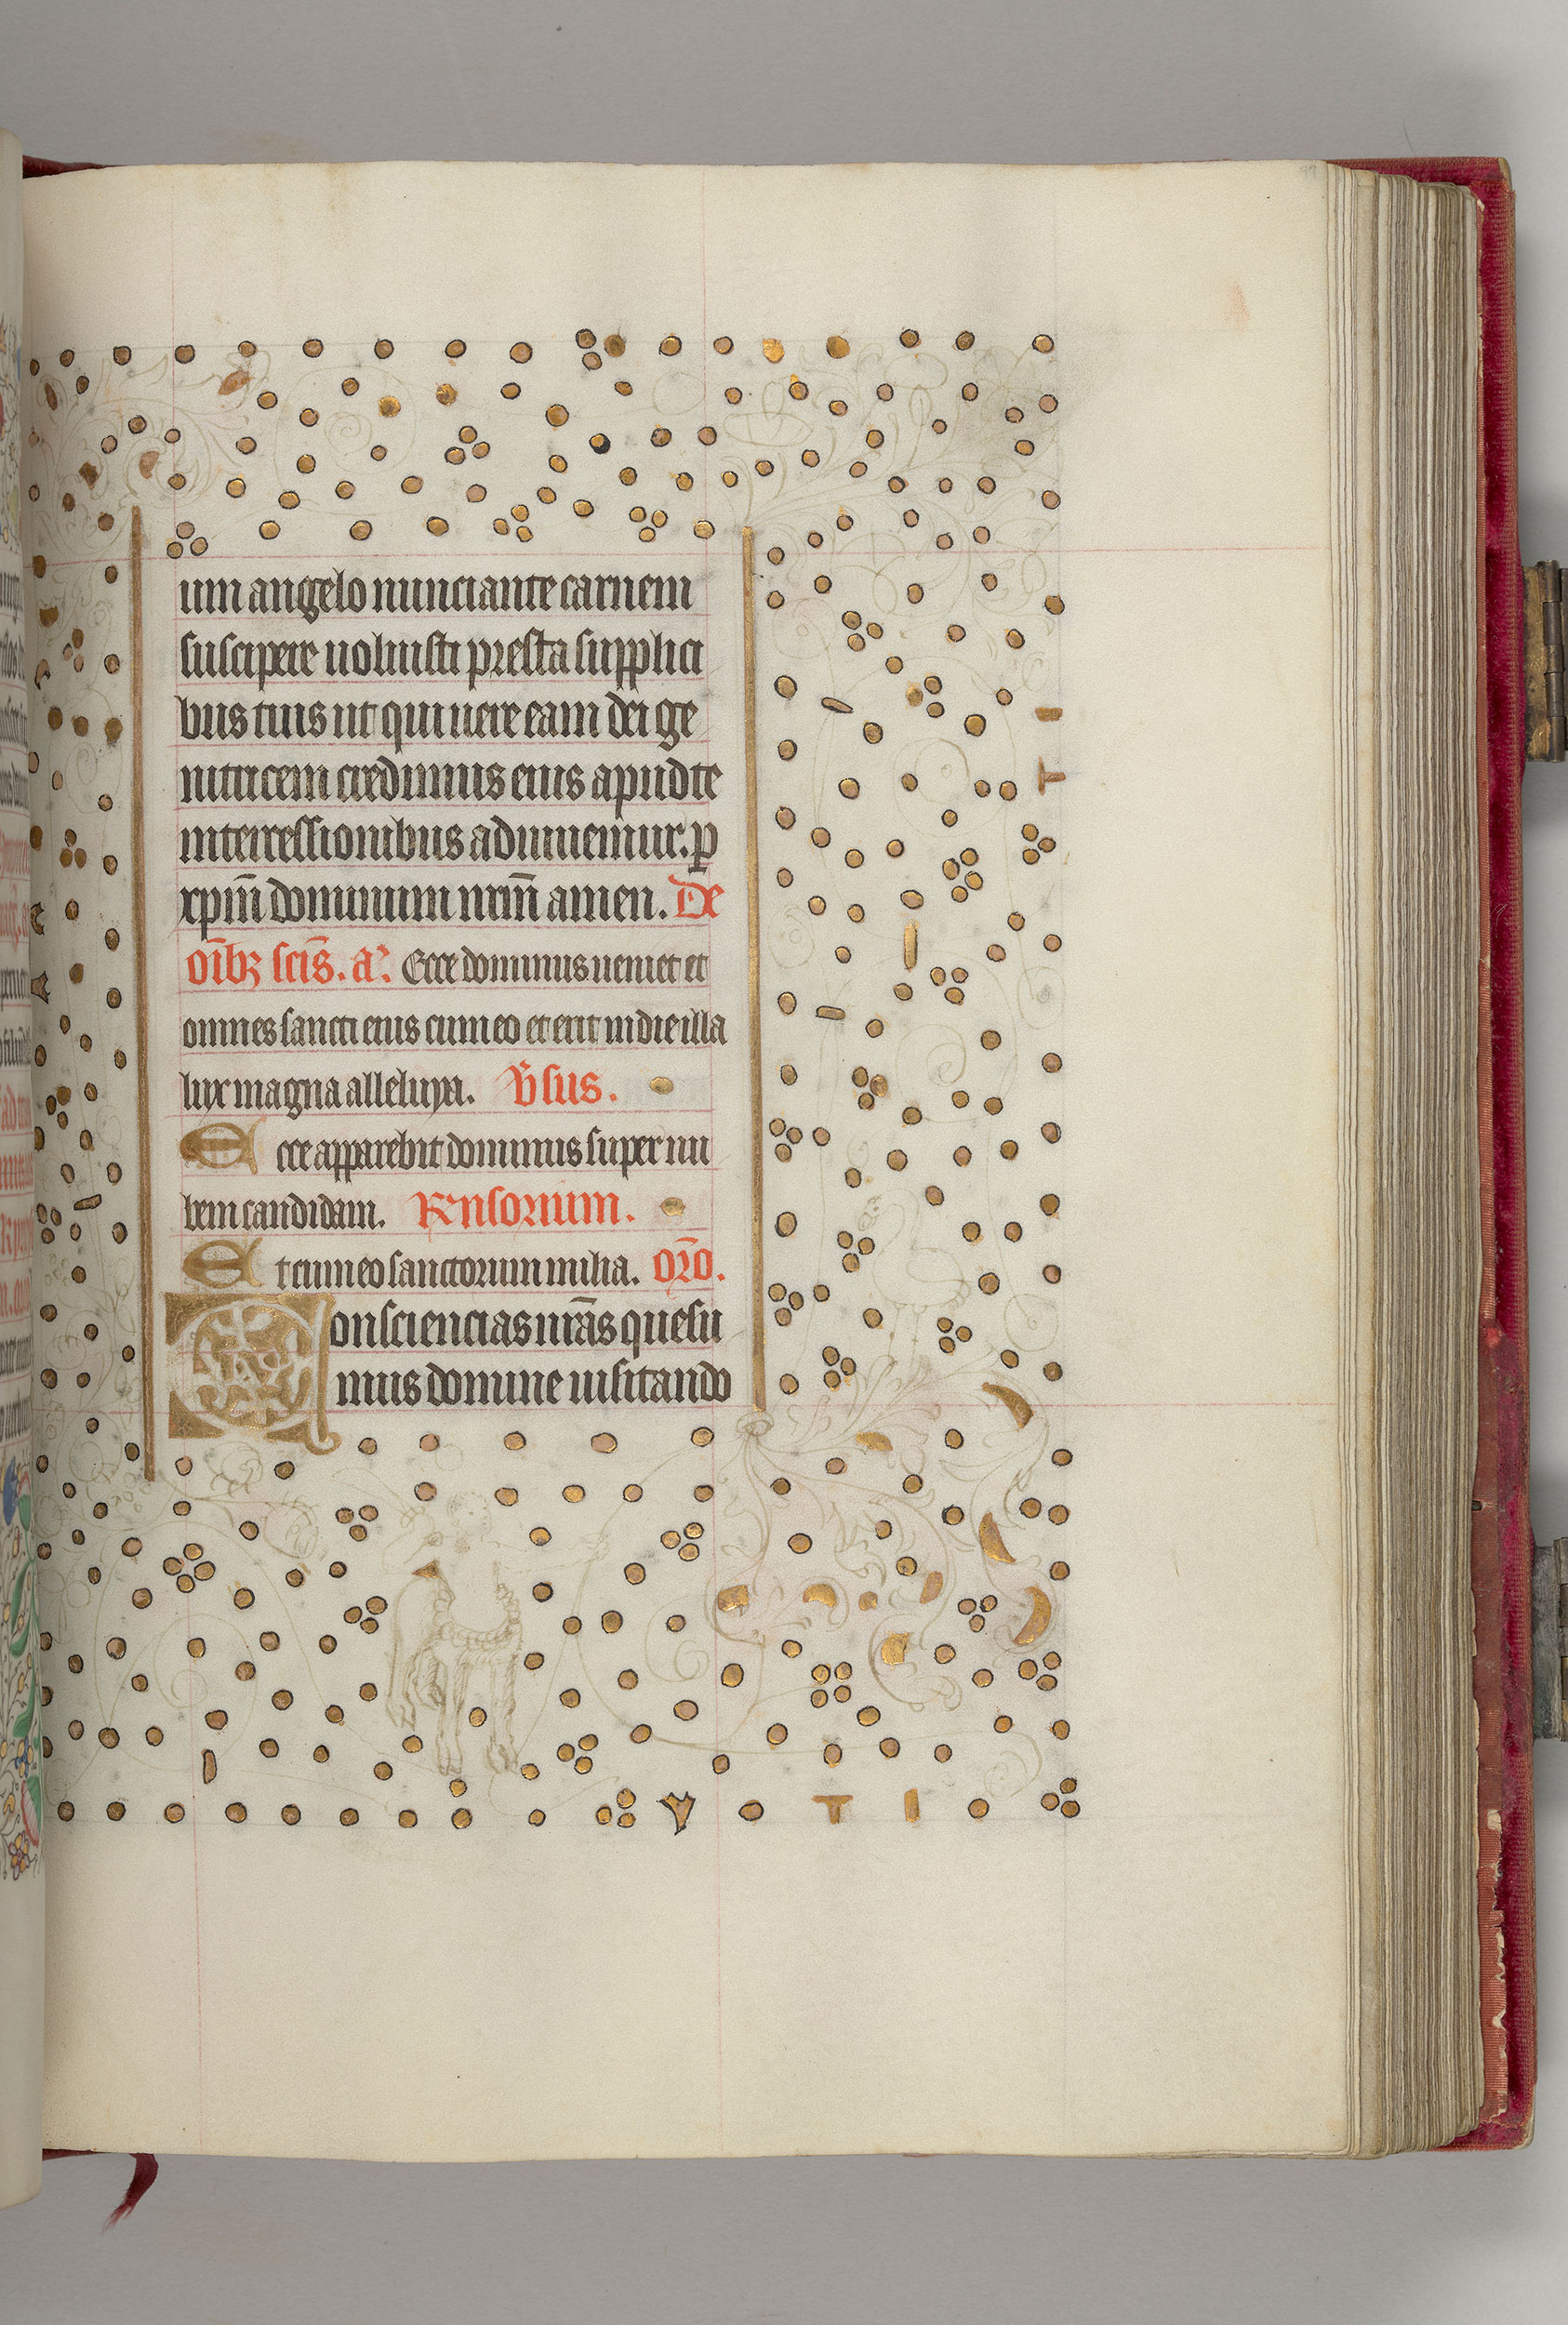 um angelo nunciante carnem
suscipere uoluisti presta supplici
bus tuis ut qui uere eam dei ge
nitricem credimus eius apud te
intercessionibus adiuuemur. p
xpm̄ dominum nrm̄ amen. De
oīb₃ scīs. a. Ecce dominus ueniet et
omnes sancti eius cum eo et erit in die illa
lux magna alleluya. v̄sus.
Ecce apparebit dominus super nu
bem candidam. Rnsorium.
Et cum eo sanctorum milia. oro̅.
Consciencias nrās quesu
mus domine uisitando